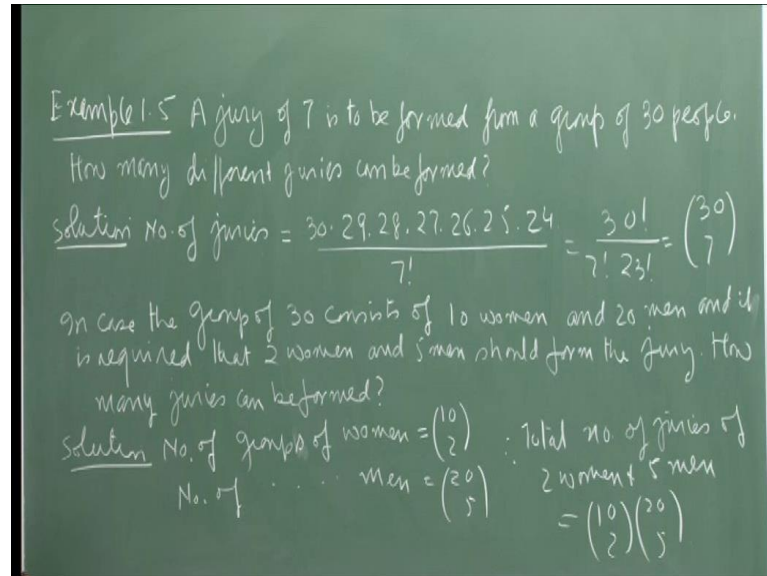 Example 1.5 A jury of 7 is to be formed from a group of 30 people.
How many different juries can be formed?
Solution No. of juries = 30. 29. 28. 27. 26. 25. 24 / 7! = 30! / 7! 23! = (30 7)
In case the group of 30 consists of 10 women and 20 men and it
is required that 2 women and 5 men should form the jury. How
many juries can be formed?
Solution No. of groups of women = (10 2)
No. of ..... men = (20 5)
∴ Total no. of juries of
2 women & 5 men
= (10 2) (20 5)